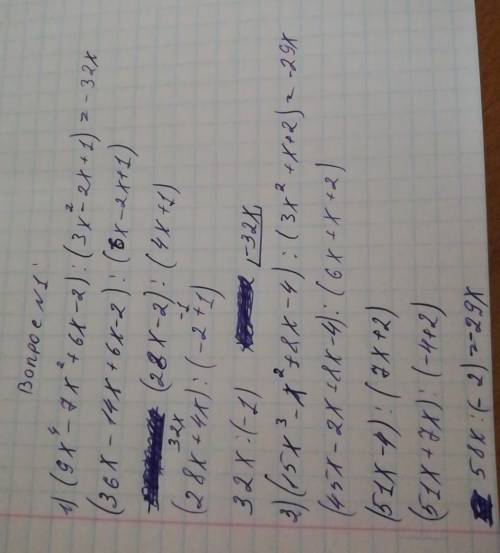 Вопрос №1
1) (9x⁴-7x²+6x-2):(3x²-2x+1)=-32x
(36x-14x+6x-2):(6x-2x+1)
(28x-2):(4x+1)
32x -1
(28x+4x):(-2+1)
32x:(-1) -32x
2) (15x³-x²+8x-4):(3x²+x+2)=-29x
(45x-2x+8x-4):(6x+x+2)
(51x-4):(7x+2)
(51x+7x):(-4+2)
58x:(-2)=-29x